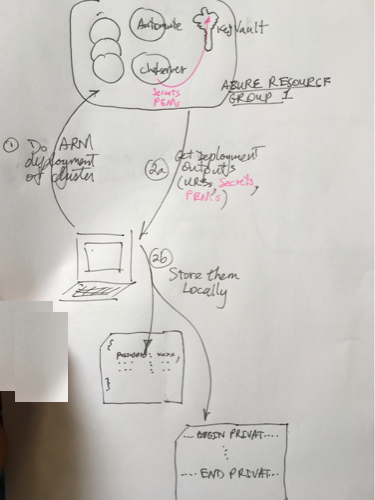 Automate
KeyVault
Chefserver
Secrets
PEMs
AZURE RESOURCE
GROUP 1
① Do ARM
deployment
of cluster
2a Get Deployment
Outputs
(URLs, Secrets,
PEMs)
2b
Store them
Locally
{
password: xxxx,
--- : ---
--- : ---
}
... BEGIN PRIVAT....
:
---- END PRIVAT....